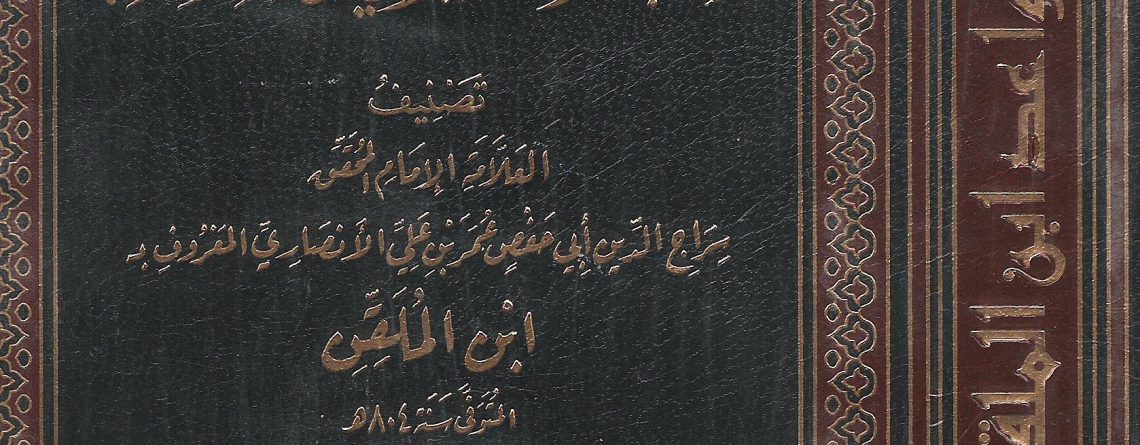 تَصْنِيفُ
العَلَّامَةِ الإِمَامِ المُحَقِّقِ
سِرَاجِ الدِّينِ أَبِي حَفْصٍ عُمَرَ بْنِ عَلِيٍّ الأَنْصَارِيِّ المَعْرُوفِ بِـ
ابْنِ المُلَقِّنِ
المُتَوَفَّى سَنَةَ ٨٠٤هـ
ابن